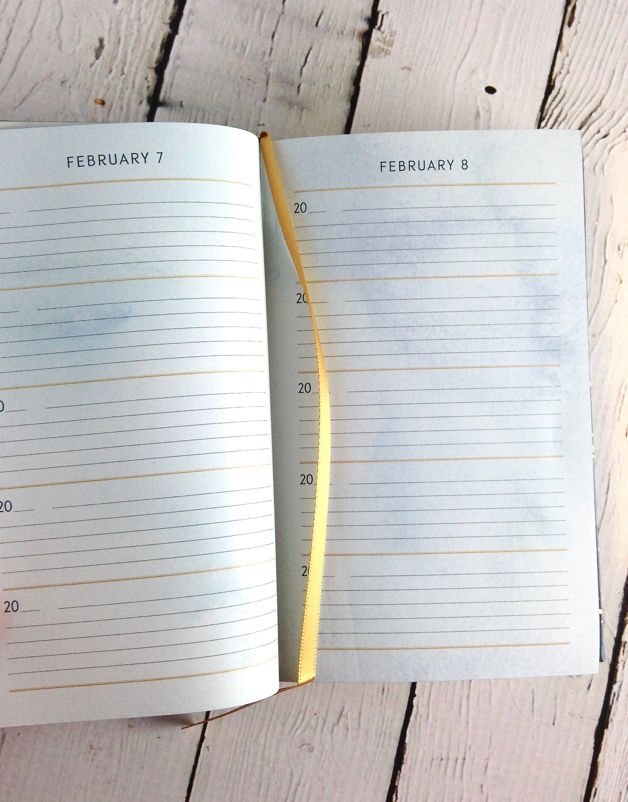 FEBRUARY 7
0
20
20
FEBRUARY 8
20
20
20
20
2